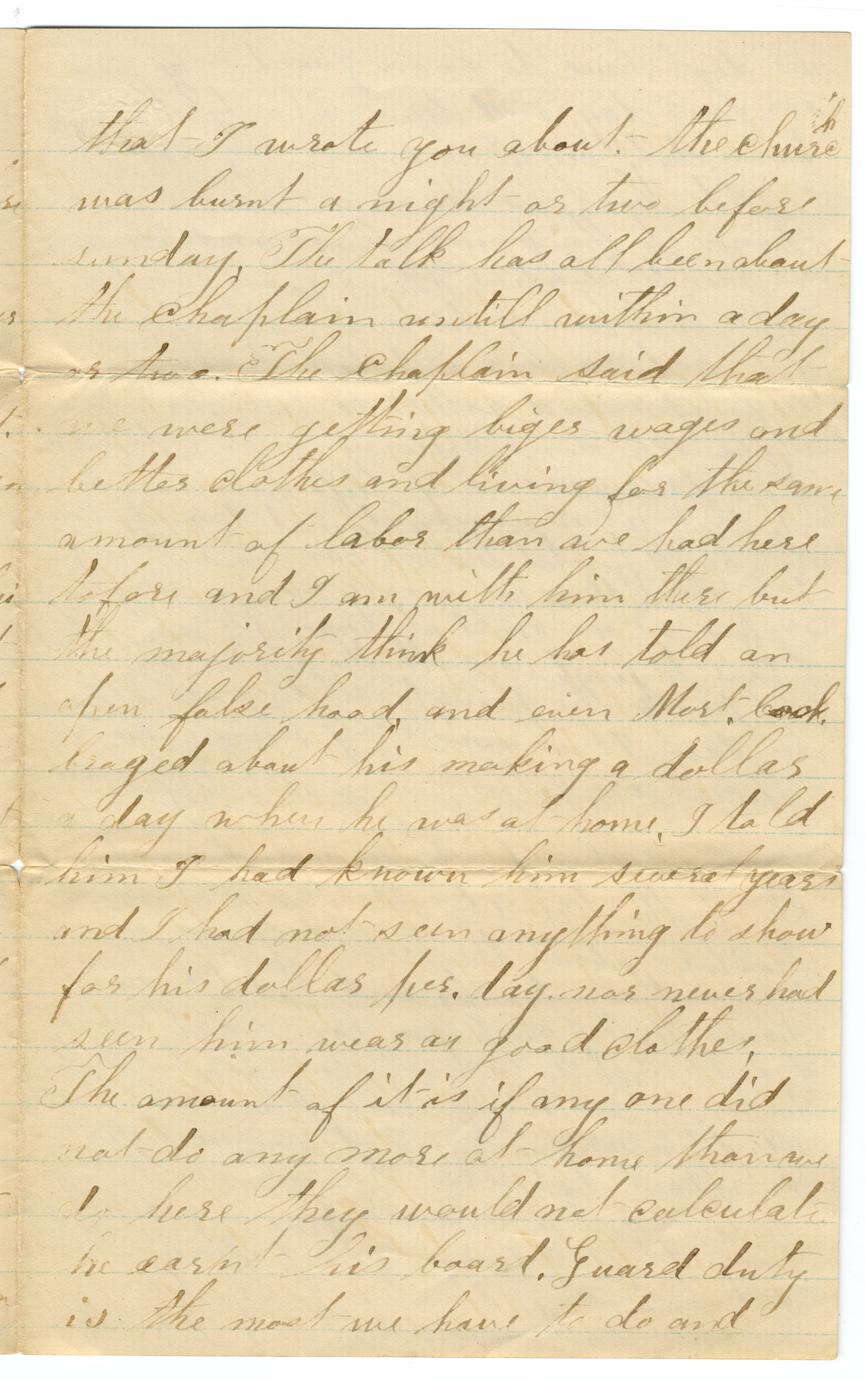 that I wrote you about. the church
was burnt a night or two before
sunday. The talk has all been about
the chaplain untill within a day
or two. The Chaplain said that
we were getting biger wages and
better clothes and living for the same
amount of labor than we had here
tofore and I am with him there but
the majority think he has told an
open false hood, and even Mort.
braged about his making a dollar
a day when he was at home, I told
him I had known him several years
and I had not seen anything to show
for his dollar per. day. nor never had
seen him wear as good clothes,
The amount of it is if any one did
not do any more at home than we
do here they would not calculate
he earnt his board. Guard duty
is the most we have to do and